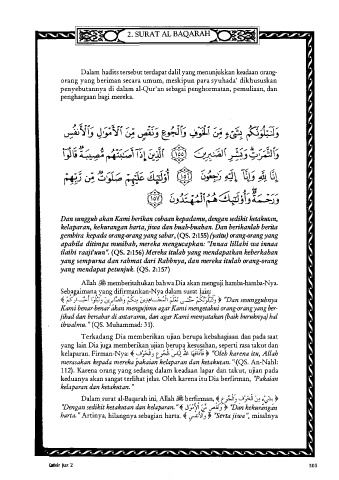 2. SURAT AL BAQARAH
Dalam hadits tersebut terdapat dalil yang menunjukkan keadaan orang-
orang yang beriman secara umum, meskipun para syuhada' dikhususkan
penyebutannya di dalam al-Qur'an sebagai penghormatan, pemuliaan, dan
penghargaan bagi mereka.
وَلَنَبْلُوَنَّكُم بِشَيْءٍ مِّنَ الْخَوْفِ وَالْجُوعِ وَنَقْصٍ مِّنَ الْأَمْوَالِ وَالْأَنفُسِ
وَالثَّمَرَاتِ وَبَشِّرِ الصَّابِرِينَ ١٥٥ الَّذِينَ إِذَا أَصَابَتْهُم مُّصِيبَةٌ قَالُوا
إِنَّا لِلَّهِ وَإِنَّا إِلَيْهِ رَاجِعُونَ ١٥٦ أُولَٰئِكَ عَلَيْهِمْ صَلَوَاتٌ مِّن رَّبِّهِمْ
وَرَحْمَةٌ وَأُولَٰئِكَ هُمُ الْمُهْتَدُونَ ١٥٧
Dan sungguh akan Kami berikan cobaan kepadamu, dengan sedikit ketakutan,
kelaparan, kekurangan harta, jiwa dan buah-buahan. Dan berikanlah berita
gembira kepada orang-orang yang sabar, (QS. 2:155) (yaitu) orang-orang yang
apabila ditimpa musibah, mereka mengucapkan: "Innaa lillahi wa innaa
ilaihi raaji'uun". (QS. 2:156) Mereka itulah yang mendapatkan keberkahan
yang sempurna dan rahmat dari Rabbnya, dan mereka itulah orang-orang
yang mendapat petunjuk. (QS. 2:157)
Allah ﷻ memberitahukan bahwa Dia akan menguji hamba-hamba-Nya.
Sebagaimana yang difirmankan-Nya dalam surat lain:
﴿ وَلَنَبْلُوَنَّكُمْ حَتَّىٰ نَعْلَمَ الْمُجَاهِدِينَ مِنكُمْ وَالصَّابِرِينَ وَنَبْلُوَ أَخْبَارَكُمْ ﴾ "Dan sesungguhnya
Kami benar-benar akan mengujimu agar Kami mengetahui orang-orang yang ber-
jihad dan bersabar di antaramu, dan agar Kami menyatakan (baik buruknya) hal
ihwalmu." (QS. Muhammad: 31).
Terkadang Dia memberikan ujian berupa kebahagiaan dan pada saat
yang lain Dia juga memberikan ujian berupa kesusahan, seperti rasa takut dan
kelaparan. Firman-Nya: ﴿ فَأَذَاقَهَا اللَّهُ لِبَاسَ الْجُوعِ وَالْخَوْفِ ﴾ "Oleh karena itu, Allah
merasakan kepada mereka pakaian kelaparan dan ketakutan." (QS. An-Nahl:
112). Karena orang yang sedang dalam keadaan lapar dan takut, ujian pada
keduanya akan sangat terlihat jelas. Oleh karena itu Dia berfirman, "Pakaian
kelaparan dan ketakutan."
Dalam surat al-Baqarah ini, Allah ﷻ berfirman, ﴿ بِشَيْءٍ مِّنَ الْخَوْفِ وَالْجُوعِ ﴾
"Dengan sedikit ketakutan dan kelaparan." ﴿ وَنَقْصٍ مِّنَ الْأَمْوَالِ ﴾ "Dan kekurangan
harta." Artinya, hilangnya sebagian harta. ﴿ وَالْأَنفُسِ ﴾ "Serta jiwa", misalnya
Tafsir Juz 2
303